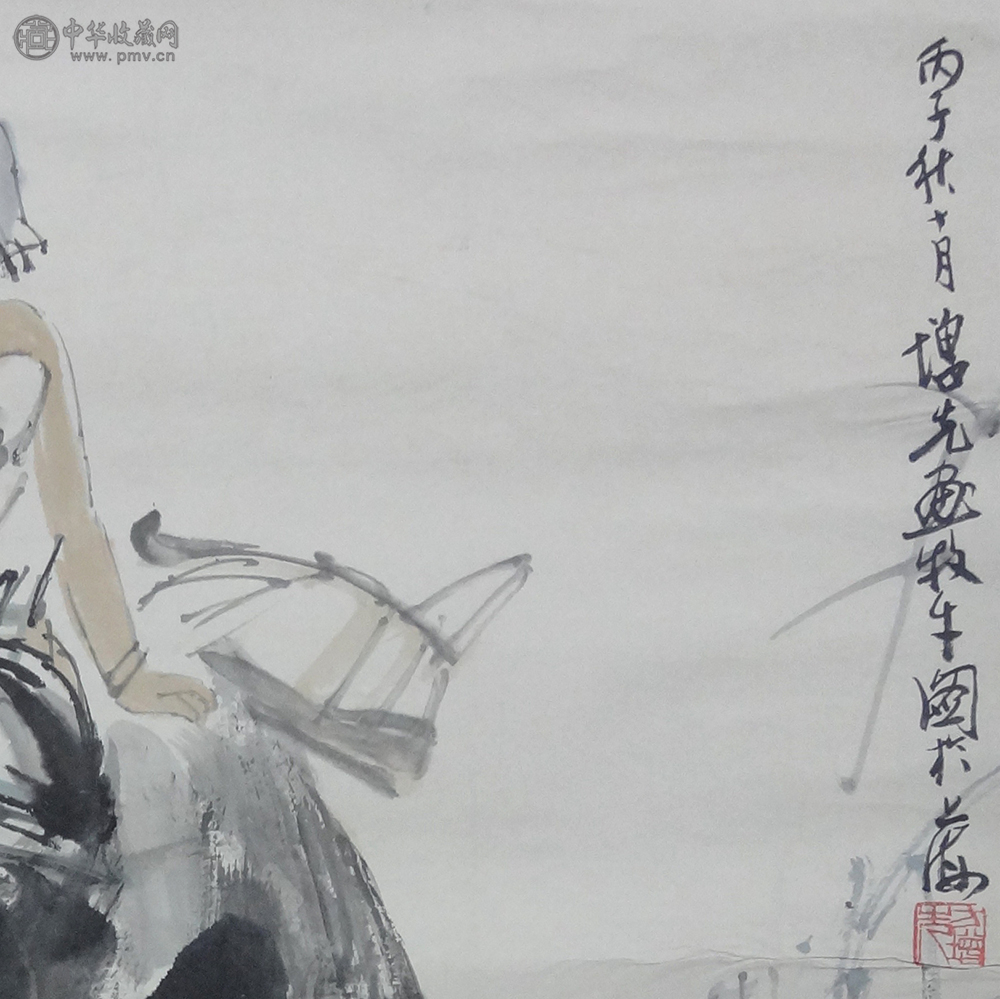 中华收藏网
www.pmv.cn
丙子秋十月增先画牧牛图於上海